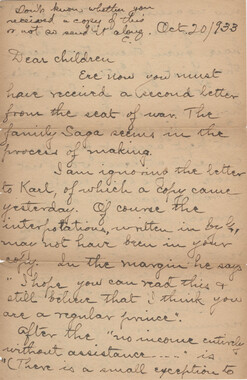 Don't know whether you
received a copy of this
or not so send it along. Oct. 20/933
Dear children
Ere now you must
have received a second letter
from the seat of war. The
family Saga seems in the
process of making.
I am ignoring the letter
to Karl, of which a copy came
yesterday. Of course the
interpolations, written in by
may not have been in your
copy. In the margin he says
"I hope you can read this &
still believe that I think you
are a regular prince".
After the "no income entirely
without assistance....." is
"(There is a small exception to